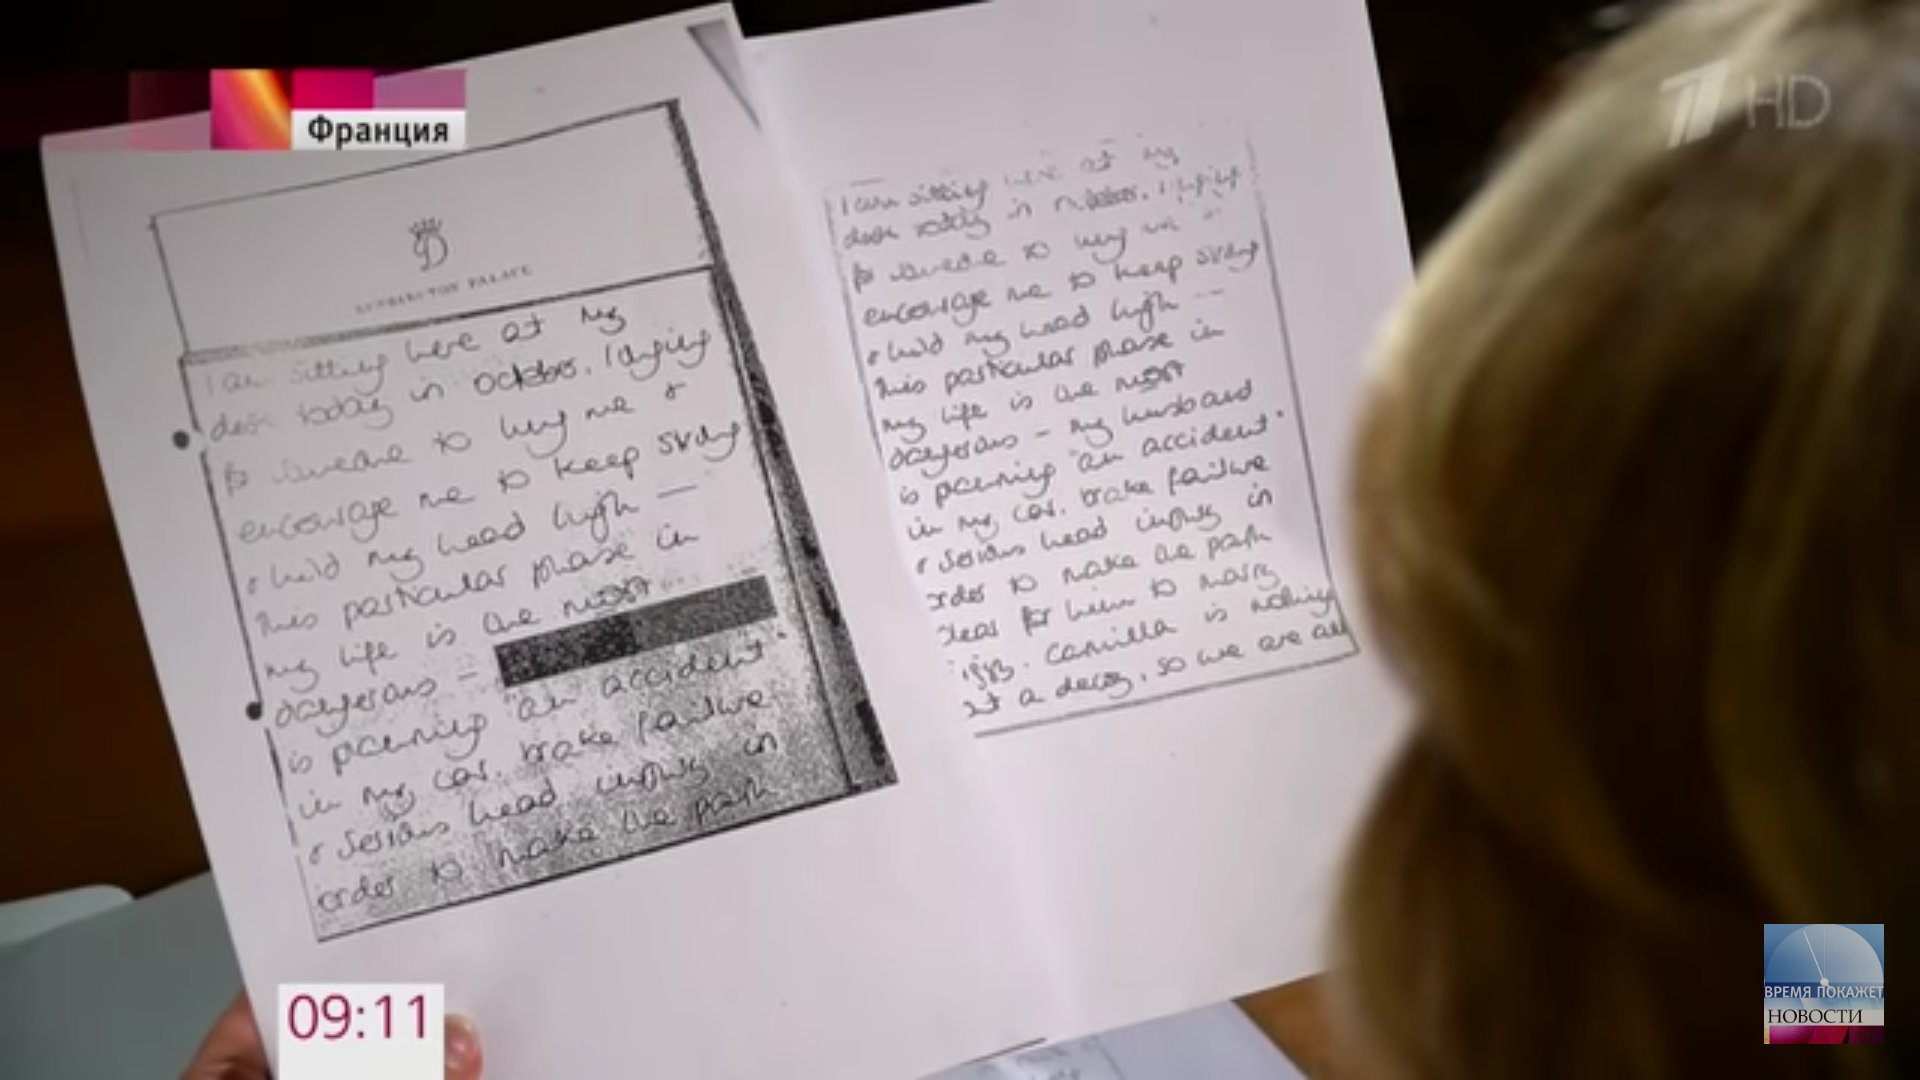 Франция
HD
D
KENSINGTON PALACE
I am sitting here at my
desk today in october, longing
for someone to hug me &
encourage me to keep strong
& hold my head high —
This particular phase in
my life is the most
dangerous –
is planning "an accident"
in my car. brake failure
& serious head injury in
order to make the path
I am sitting here at my
desk today in october, longing
for someone to hug me &
encourage me to keep strong
& hold my head high —
This particular phase in
my life is the most
dangerous – my husband
is planning "an accident"
in my car. brake failure
& serious head injury in
order to make the path
clear for him to marry
Tiggy. Camilla is nothing
but a decoy, so we are all
09:11
ВРЕМЯ ПОКАЖЕТ
НОВОСТИ